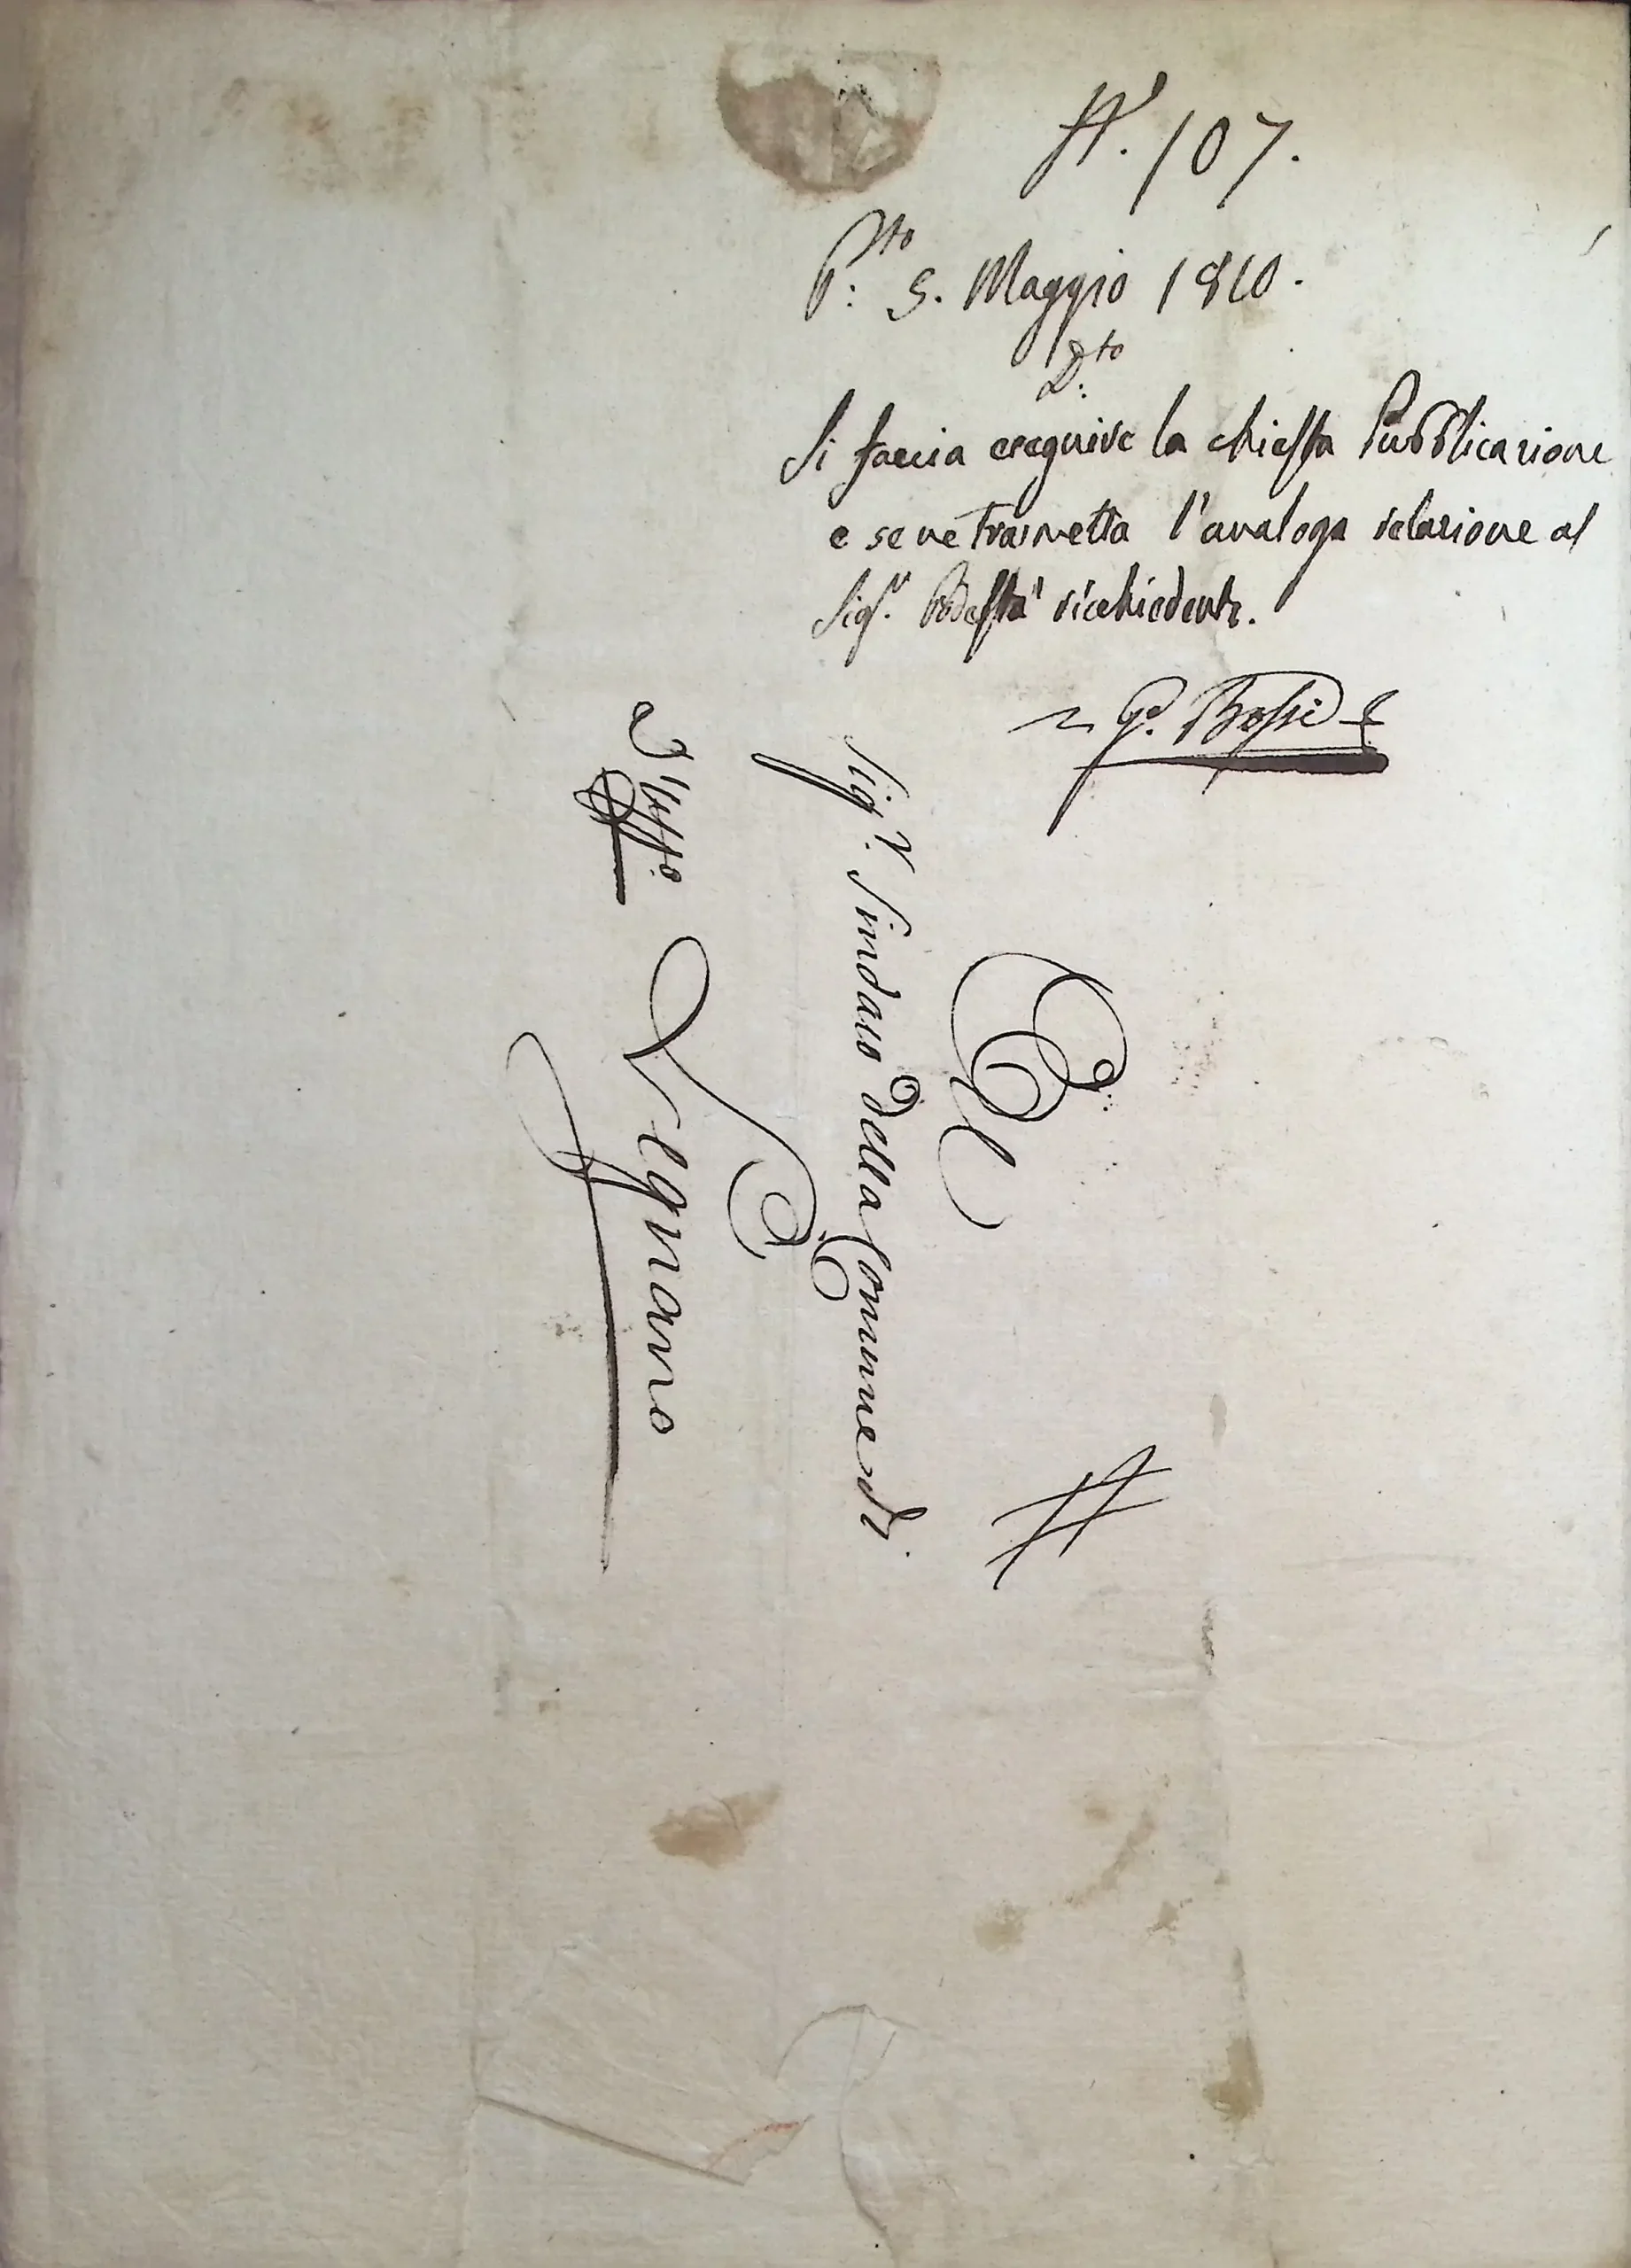 N.° 107.
P.to 5. Maggio 1810.
D.to
Si faccia eseguire la chiesta Pubblicazione
e se ne trasmetta l'analoga relazione al
Sig.r Podestà richiedente.
G.e Bossi
Al
Sig.r Sindaco della Comune di
d'Uff.o Legnano